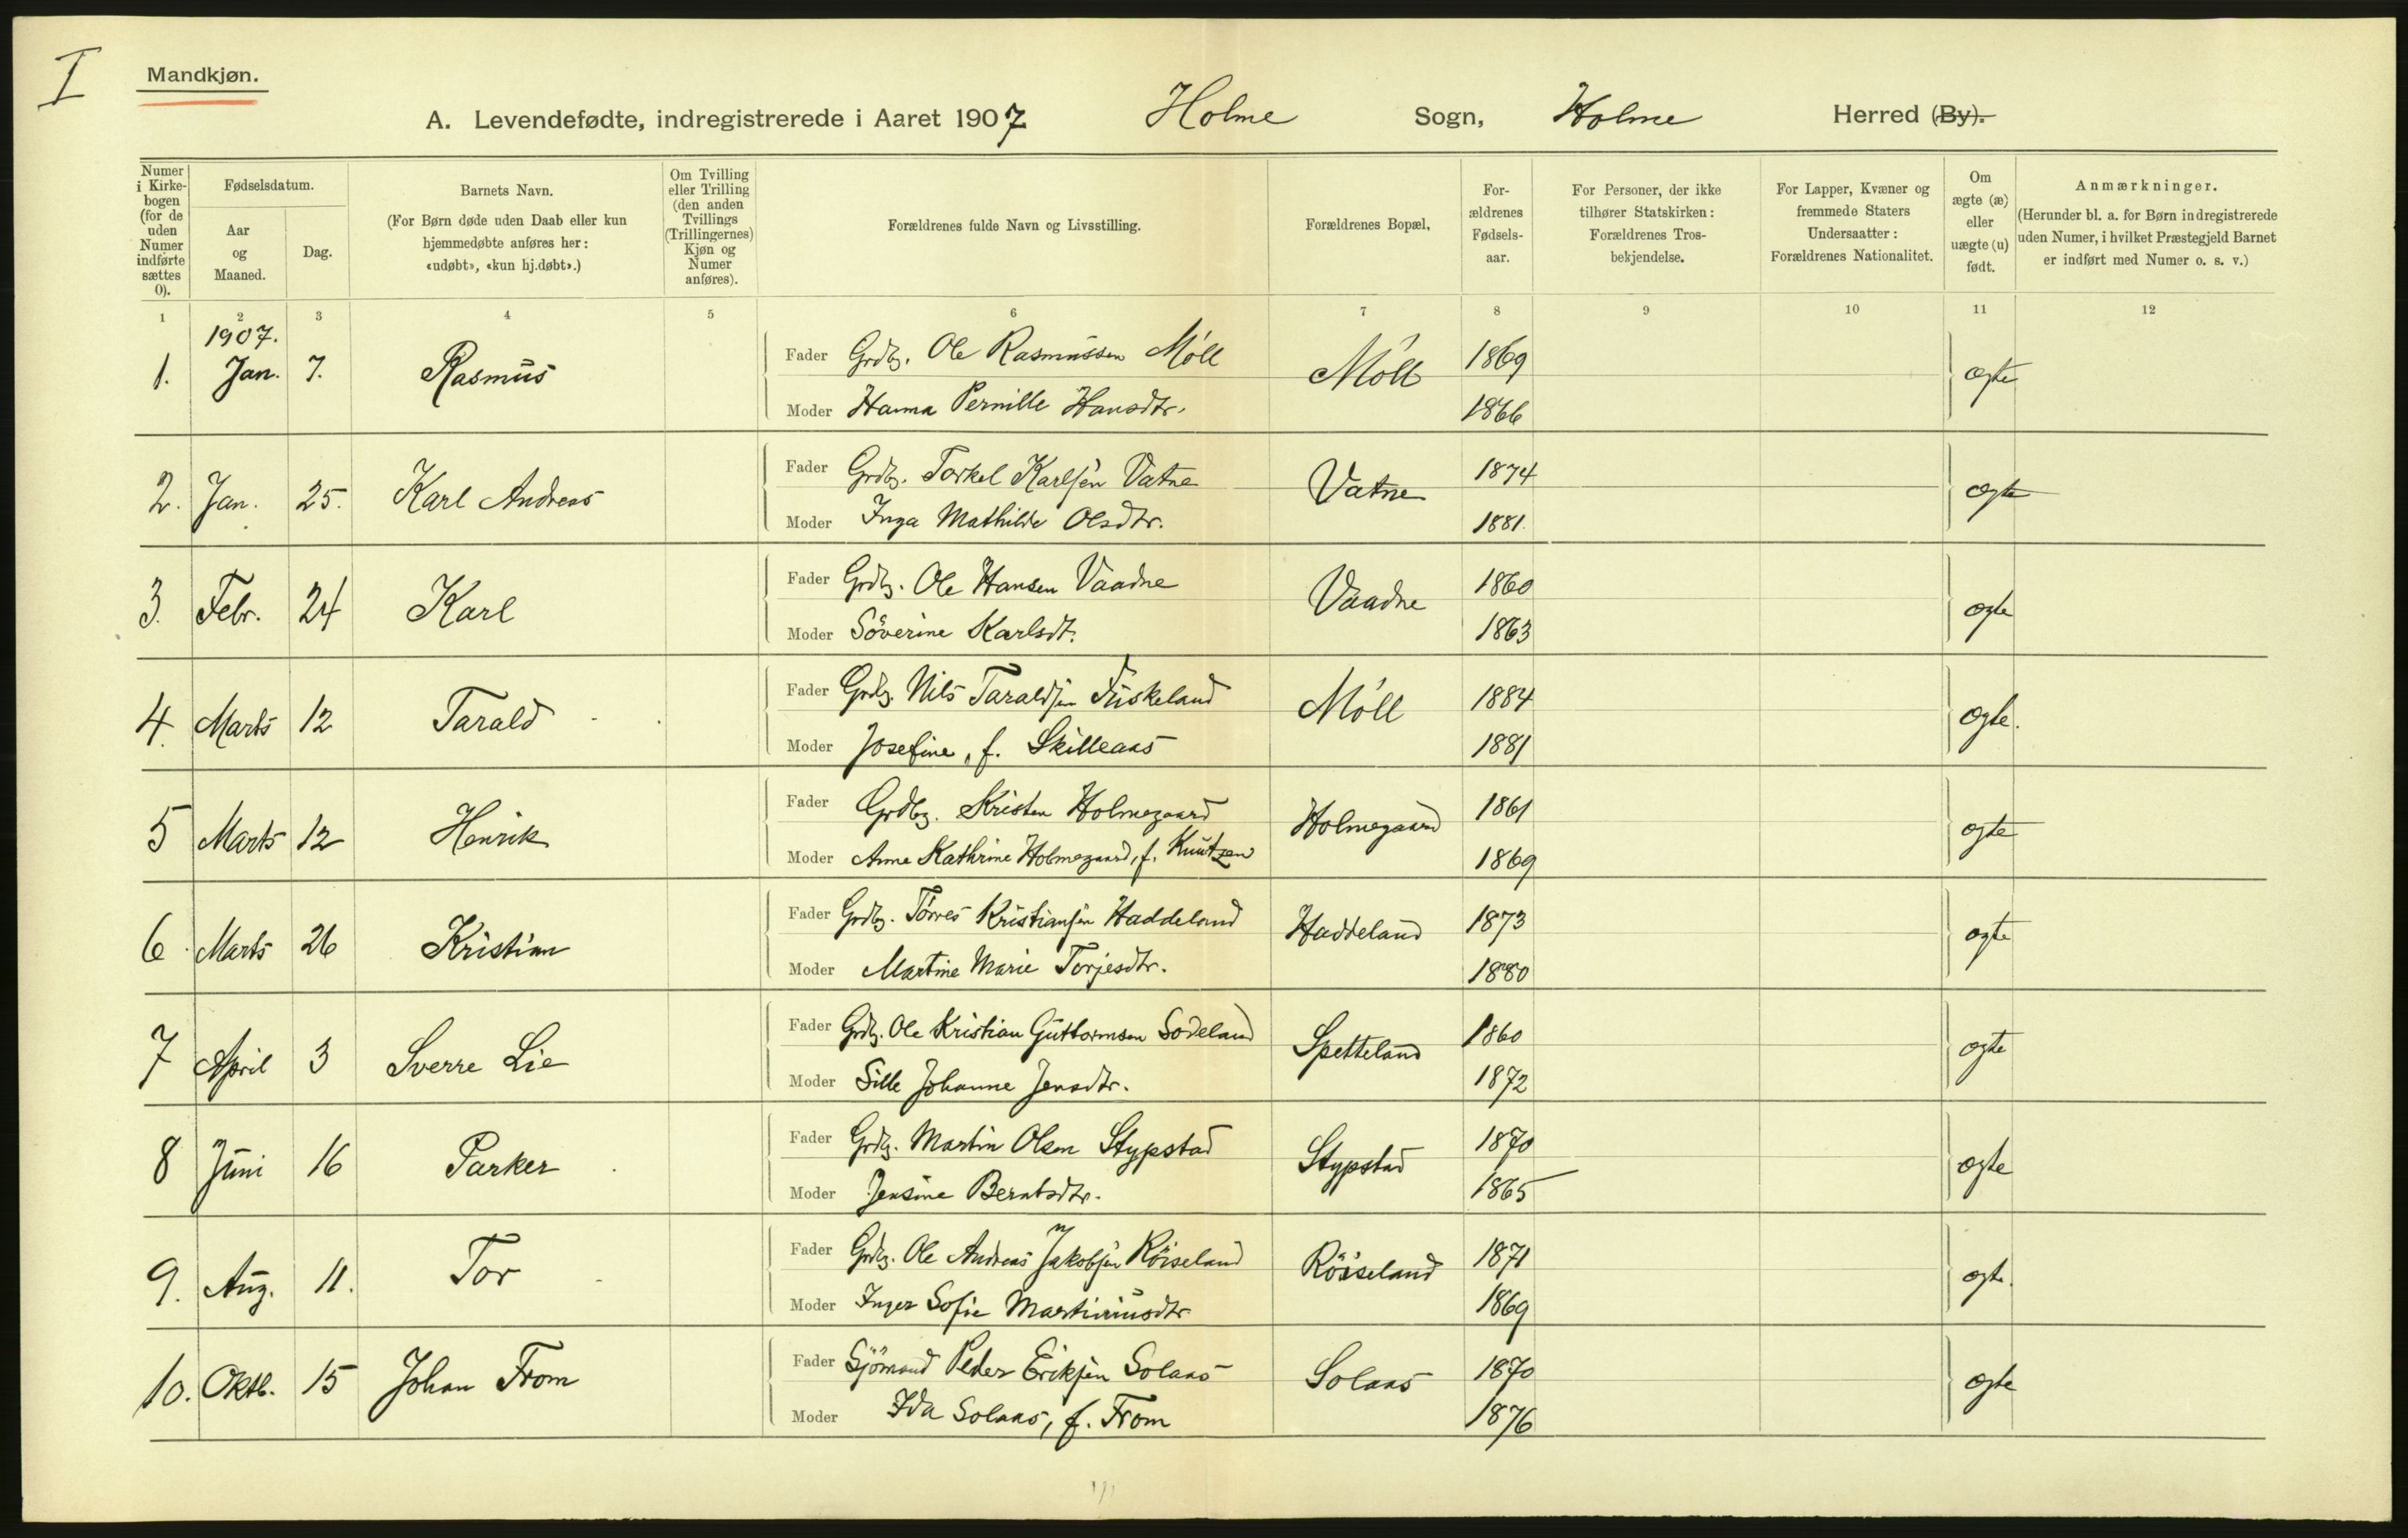 I
Mandkjøn.
A. Levendefødte, indregistrerede i Aaret 1907 Holme Sogn, Holme Herred (By).
Numer i Kirke-bogen (for de uden Numer indførte sættes 0).
Fødselsdatum.
Aar og Maaned.
Dag.
Barnets Navn.
(For Børn døde uden Daab eller kun hjemmedøbte anføres her: «udøbt», «kun hj.døbt».)
Om Tvilling eller Trilling (den anden Tvillings (Trillingernes) Kjøn og Numer anføres).
Forældrenes fulde Navn og Livsstilling.
Forældrenes Bopæl.
For-ældrenes Fødsels-aar.
For Personer, der ikke tilhører Statskirken: Forældrenes Tros-bekjendelse.
For Lapper, Kvæner og fremmede Staters Undersaatter: Forældrenes Nationalitet.
Om ægte (æ) eller uægte (u) født.
Anmærkninger.
(Herunder bl. a. for Børn indregistrerede uden Numer, i hvilket Præstegjeld Barnet er indført med Numer o. s. v.)
1 2 3 4 5 6 7 8 9 10 11 12
1907.
1. Jan. 7. Rasmus Fader Grdbr. Ole Rasmussen Møll Møll 1869 ægte
Moder Hanna Pernille Hansdtr. 1866
2. Jan. 25. Karl Andreas Fader Grdbr. Torkel Karlsen Vatne Vatne 1874 ægte
Moder Inga Mathilde Olsdtr. 1881.
3. Febr. 24 Karl Fader Grdbr. Ole Hansen Vaadne Vaadne 1860 ægte
Moder Söverine Karlsdt. 1863
4. Marts 12 Tarald Fader Grdbr. Nils Taraldsen Fuskeland Møll 1884 ægte.
Moder Josefine, f. Skilleaas 1881
5 Marts 12 Henrik Fader Grdbr. Kristen Holmegaard Holmegaard 1861 ægte
Moder Anne Kathrine Holmegaard, f. Knutzen 1869
6 Marts 26 Kristian Fader Grdbr. Törres Kristiansen Haddeland Haddeland 1873 ægte
Moder Martine Marie Torjesdtr. 1880
7 April 3 Sverre Lie Fader Grdbr. Ole Kristian Guttormsen Sodeland Spetteland 1860 ægte
Moder Sille Johanne Jensdtr. 1872
8 Juni 16 Parker Fader Grdbr. Martin Olsen Stypstad Stypstad 1870 ægte
Moder Jensine Berntsdtr. 1865
9. Aug. 11. Tor Fader Grdbr. Ole Andreas Jakobsen Röiseland Röiseland 1871 ægte.
Moder Inger Sofie Martiniusdtr 1869
10. Oktb. 15 Johan From Fader Sjömand Peder Eriksen Solaas Solaas 1870 ægte
Moder Ida Solaas, f. From 1876